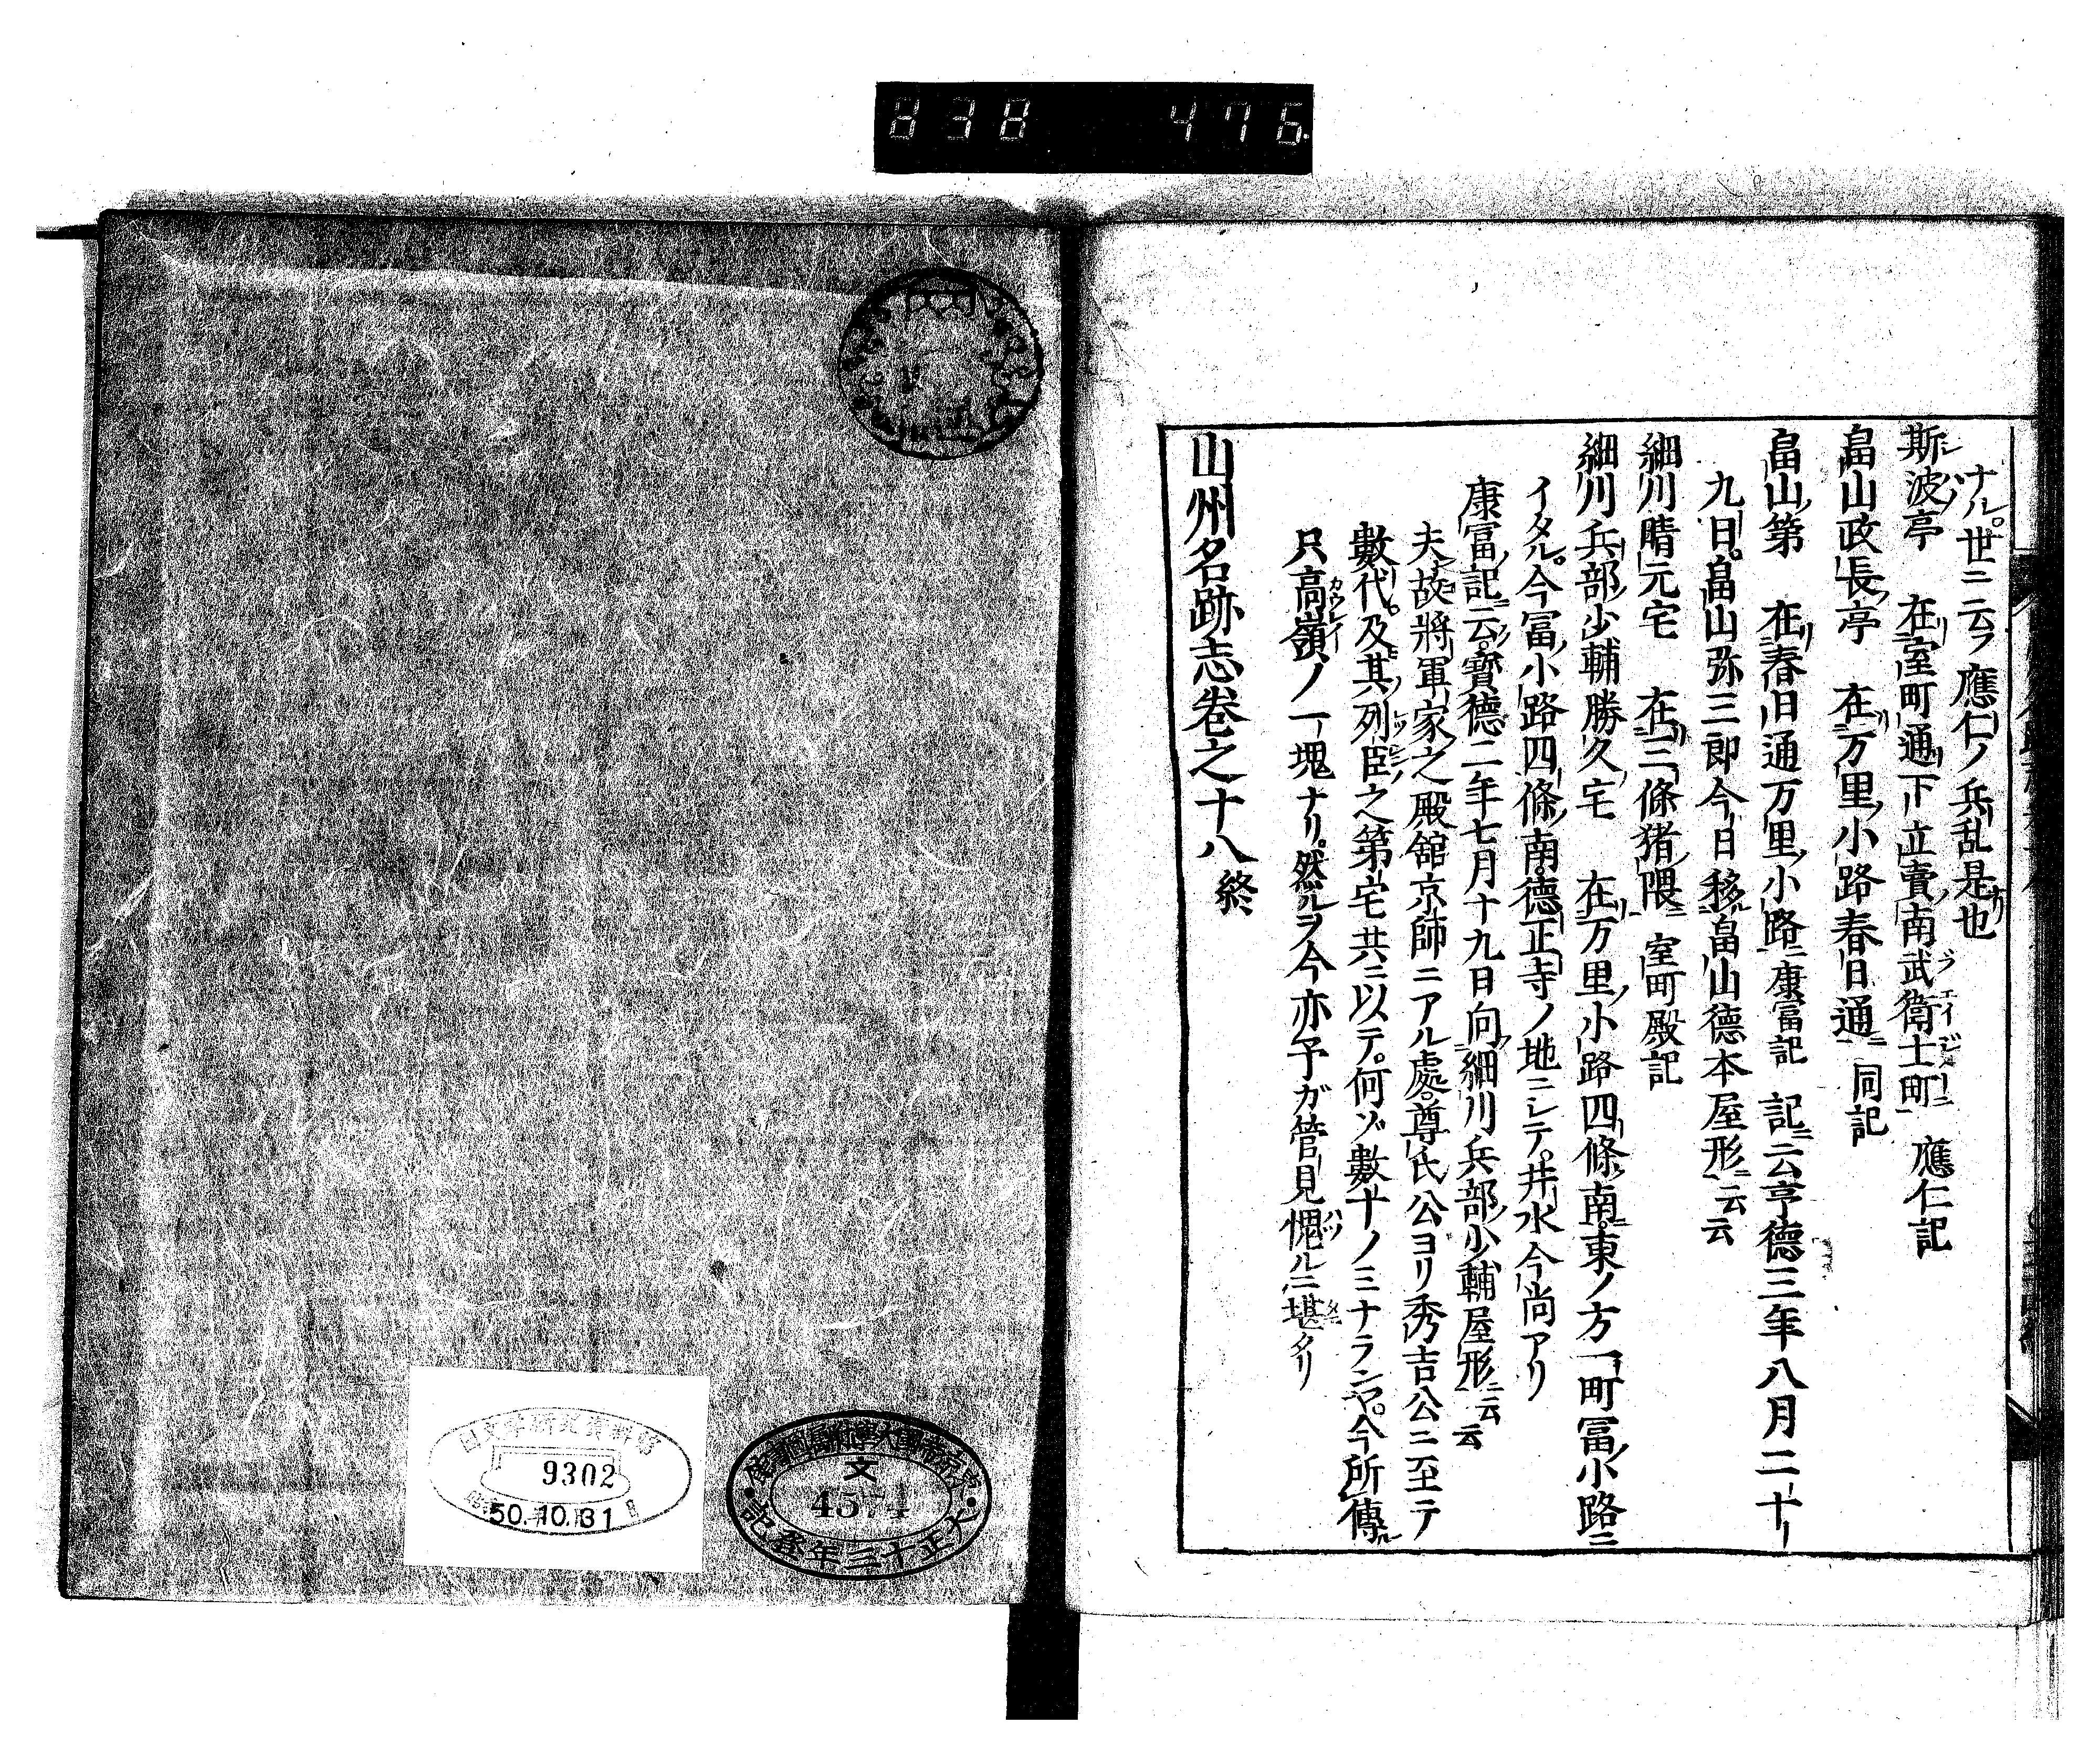 838 476
ナル。世ニ云フ應仁ノ兵乱是也
斯波亭 在室町通下立賣南武衛士町 應仁記
畠山政長亭 在万里小路春日通 同記
畠山第 在春日通万里小路 康冨記 記云享徳三年八月二十
九日。畠山弥三郎今日移畠山徳本屋形云云
細川晴元宅 在三條猪隈 室町殿記
細川兵部少輔勝久宅 在万里小路四條南。東ノ方一町冨小路ニ
イタル。今冨小路四條南。徳正寺ノ地ニシテ。井水今尚アリ
康冨記云。寳徳二年七月十九日向細川兵部少輔屋形云云
夫故將軍家之殿舘京師ニアル處。尊氏公ヨリ秀吉公ニ至テ
數代。及其列臣之第宅共ニ以テ。何ゾ數十ノミナランヤ。今所傳
只高嶺ノ一塊ナリ。然ルヲ今亦予ガ管見愧ルニ堪タリ
山州名跡志巻之十八終
文
45
大正十三年登記
9302
50.10.31